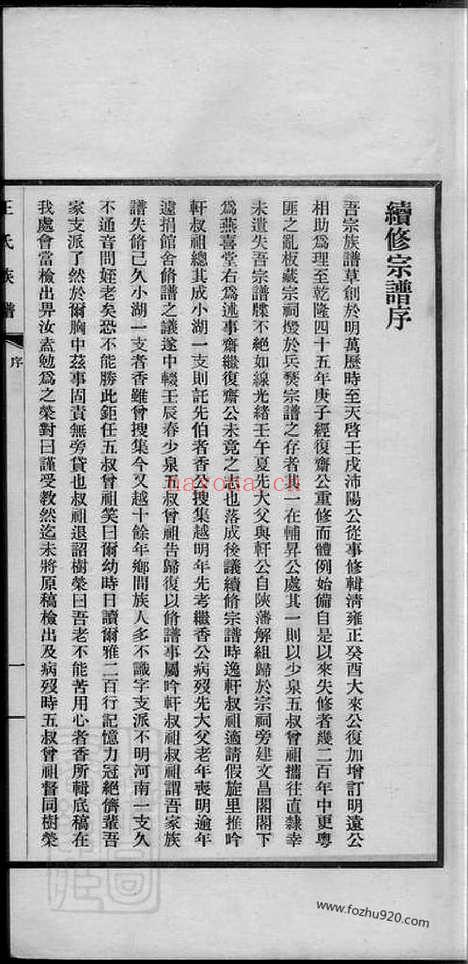 續修宗譜序
吾宗族譜草創於明萬歷時至天啓壬戌沛陽公從事修輯淸雍正癸酉大來公復加增訂明遠公
相助爲理至乾隆四十五年庚子經復齋公重修而體例始備自是以來失修者幾二百年中更粵
匪之亂板藏宗祠燬於兵燹宗譜之存者其一在輔昇公處其一則以少泉五叔曾祖攜往直隸幸
未遺失吾宗譜牒不絕如線光緒壬午夏先大父與軒公自陝藩解組歸於宗祠旁建文昌閣閣下
爲燕喜堂右爲述事齋繼復齋公未竟之志也落成後議續脩宗譜時逸軒叔祖適請假旋里推吟
軒叔祖總其成小湖一支則託先伯者香公搜集越明年先考繼香公病歿先大父老年喪明逾年
遽捐館舍脩譜之議遂中輟壬辰春少泉五叔曾祖告歸復以脩譜事屬吟軒叔祖叔祖謂吾家族
譜失脩已久小湖一支者香雖曾搜集今又越十餘年鄉間族人多不識字支派不明河南一支久
不通音問姪老矣恐不能勝此鉅任五叔曾祖笑曰爾幼時日讀爾雅二百行記憶力冠絕儕輩吾
家支派了然於爾胸中茲事固責無旁貸也叔祖退詔樹榮曰吾老不能苦用心者香所輯底稿在
我處會當檢出畀汝盍勉爲之榮對曰謹受敎然迄未將原稿檢出及病歿時五叔曾祖督同樹榮
王氏族譜
序
一
navona.com
www.fozhu920.com